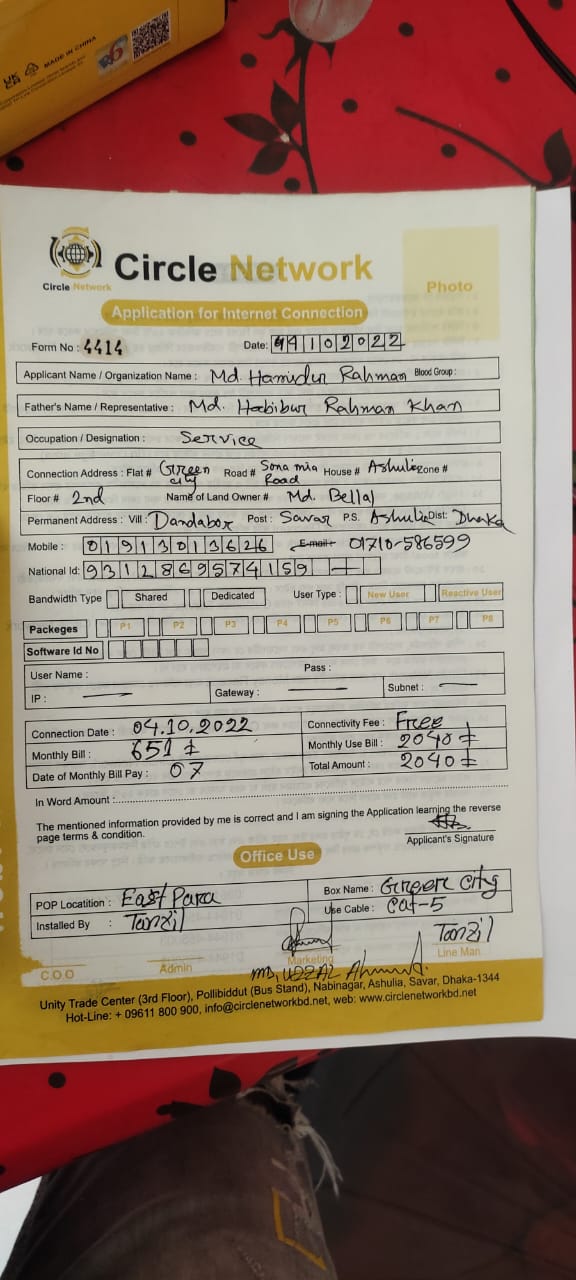 MADE IN CHINA
UK CA
Circle Network
Circle Network
Photo
Application for Internet Connection
Form No : 4414
Date: 04102022
Applicant Name / Organization Name : Md. Hamidur Rahman Blood Group :
Father's Name / Representative : Md. Habibur Rahman Khan
Occupation / Designation : Service
Connection Address : Flat # Green city Road # Sona mia Road House # Ashulia Zone #
Floor # 2nd Name of Land Owner # Md. Bellal
Permanent Address : Vill : Dandabor Post : Savar P.S. Ashulia Dist: Dhaka
Mobile : 01913013626 E-mail : 01710-586599
National Id: 9312869574159
Bandwidth Type Shared Dedicated User Type : New User Reactive User
Packeges P1 P2 P3 P4 P5 P6 P7 P8
Software Id No
User Name : Pass :
IP : — Gateway : — Subnet : —
Connection Date : 04.10.2022 Connectivity Fee : Free
Monthly Bill : 651 Monthly Use Bill : 2040
Date of Monthly Bill Pay : 07 Total Amount : 2040
In Word Amount :
The mentioned information provided by me is correct and I am signing the Application learning the reverse
page terms & condition.
Applicant's Signature
Office Use
POP Locatition : East Para Box Name : Green City
Installed By : Tanzil Use Cable : Cat-5
Tanzil
C.O.O Admin Marketing Line Man
MD. UZZAL Ahmed.
Unity Trade Center (3rd Floor), Pollibiddut (Bus Stand), Nabinagar, Ashulia, Savar, Dhaka-1344
Hot-Line: + 09611 800 900, info@circlenetworkbd.net, web: www.circlenetworkbd.net